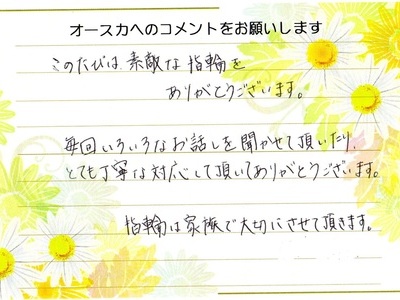 オースカへのコメントをお願いします
このたびは、素敵な指輪を
ありがとうございます。
毎回いろいろなお話しを聞かせて頂いたり、
とても丁寧な対応して頂いてありがとうございます。
指輪は家族で大切にさせて頂きます。